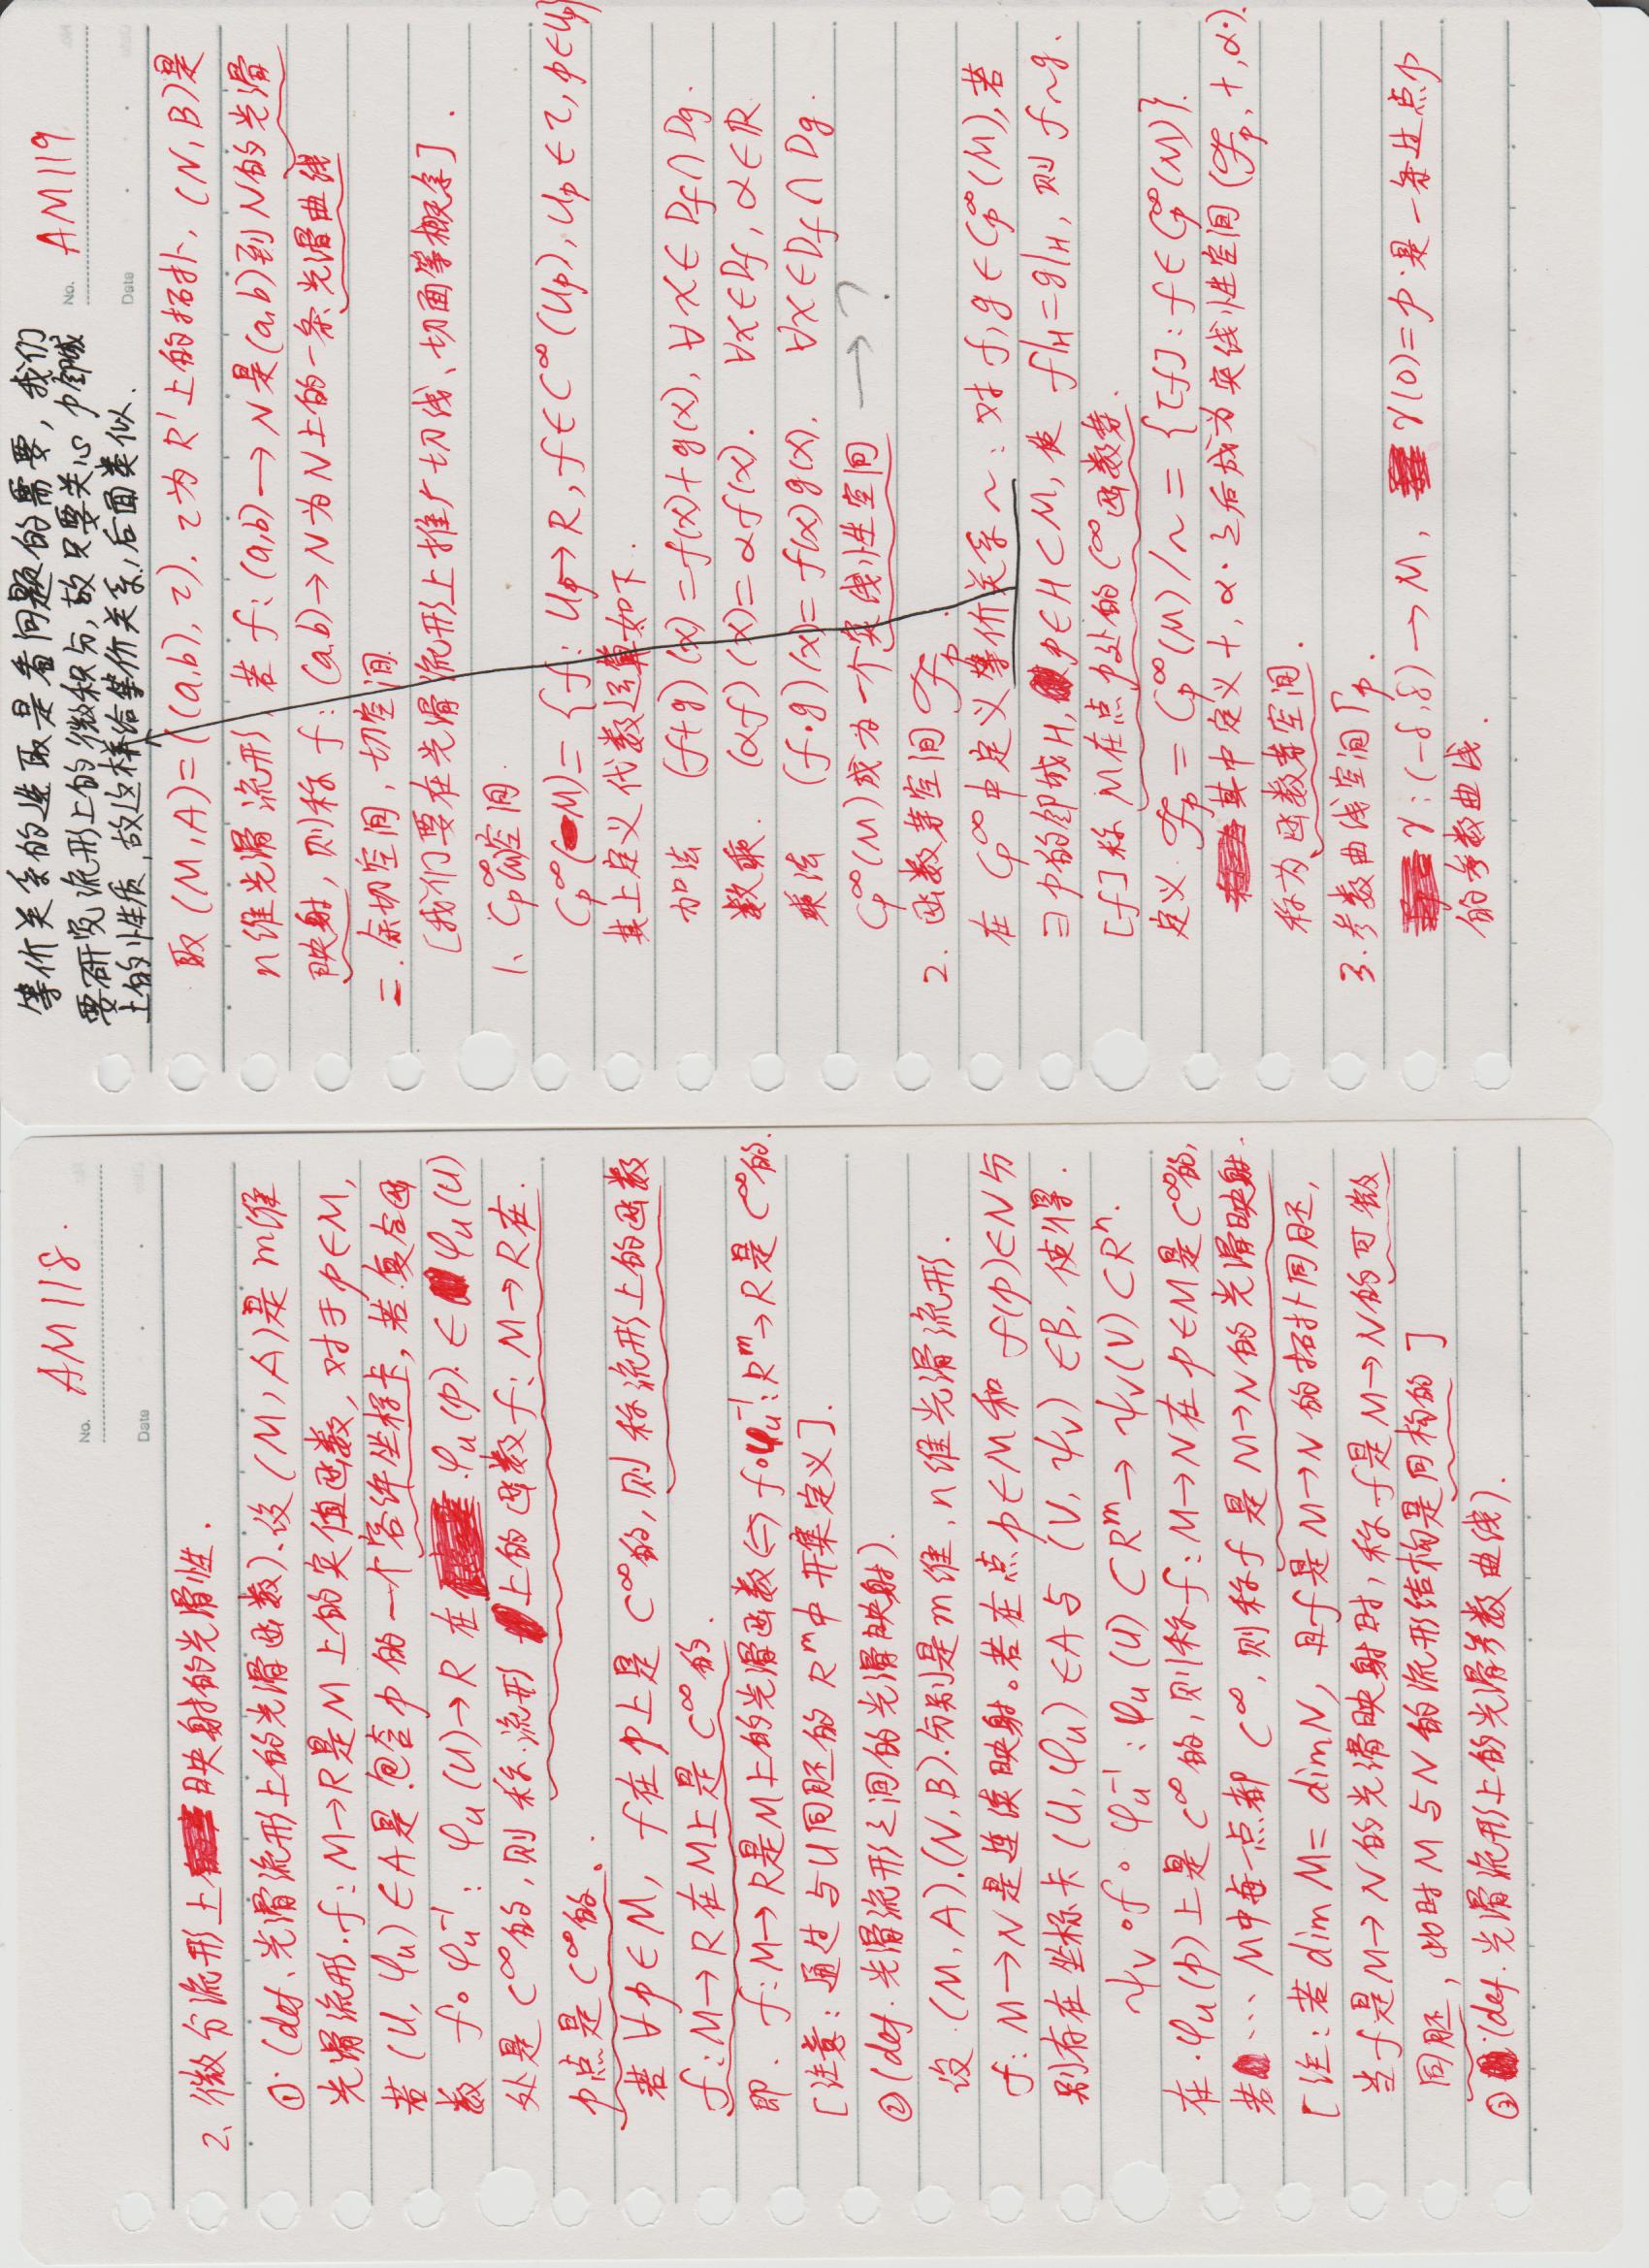 No. AM118.
Date
2、微分流形上映射的光滑性.
①(def、光滑流形上的光滑函数)、设(M,A)是m维
光滑流形.f:M→R是M上的实值函数,对于p∈M,
若(U,φ_U)∈A是包含p的一个容许坐标卡,若复合函
数 f∘φ_U⁻¹:φ_U(U)→R 在 φ_U(p)∈φ_U(U)
处是C^∞的,则称流形上的函数f:M→R在
p点是C^∞的。
若∀p∈M,f在p上是C^∞的,则称流形上的函数
f:M→R在M上是C^∞的.
即. f:M→R是M上的光滑函数⇔f∘φ_U⁻¹:R^m→R是C^∞的.
[注意:通过与U同胚的R^m中开集定义].
②(def.光滑流形之间的光滑映射).
设(M,A).(N,B).分别是m维,n维光滑流形.
f:M→N是连续映射。若在点p∈M和f(p)∈N分
别存在坐标卡(U,φ_U)∈A与(V,ψ_V)∈B,使得.
ψ_V∘f∘φ_U⁻¹:φ_U(U)⊂R^m→ψ_V(V)⊂R^n.
在φ_U(p)上是C^∞的,则称f:M→N在p∈M是C^∞的,
若…M中每一点都C^∞,则称f是M→N的光滑映射.
[注:若dim M=dim N,且f是M→N的拓扑同胚,
当f是M→N的光滑映射时,称f是M→N的可微
同胚,此时M与N的流形结构是同构的]
③(def.光滑流形上的光滑参数曲线).
等价关系的选取是看问题的需要,我们
要研究流形上的微积分,故只要关心p邻域
上的性质,故这样给等价关系,后面类似.
No. AM119
Date
取(M,A)=((a,b),τ).τ为R¹上的拓扑,(N,B)是
n维光滑流形,若f:(a,b)→N是(a,b)到N的光滑
映射,则称f:(a,b)→N为N上的一条光滑曲线
二.余切空间,切空间.
[我们要在光滑流形上推广切线、切面等概念].
1、C_p^∞空间.
C_p^∞(M)={f:U_p→R,f∈C^∞(U_p),U_p∈τ,p∈U_p}
其上定义代数运算如下.
加法 (f+g)(x)=f(x)+g(x),∀x∈D_f∩D_g.
数乘. (αf)(x)=αf(x). ∀x∈D_f,α∈ℝ
乘法 (f·g)(x)=f(x)g(x). ∀x∈D_f∩D_g.
C_p^∞(M)成为一个实线性空间 → ?
2.函数芽空间ℱ_p.
在C_p^∞中定义等价关系~:对f,g∈C_p^∞(M),若
∃p的邻域H,p∈H⊂M,使 f|_H=g|_H,则f~g.
[f]称M在点p处的C^∞函数芽.
定义.ℱ_p=C_p^∞(M)/~={[f]:f∈C_p^∞(M)}.
其中定义+,α·之后成为实线性空间(ℱ_p,+,α·).
称为函数芽空间.
3.参数曲线空间Γ_p.
γ:(-δ,δ)→M, γ(0)=p是一条过点p
的参数曲线.